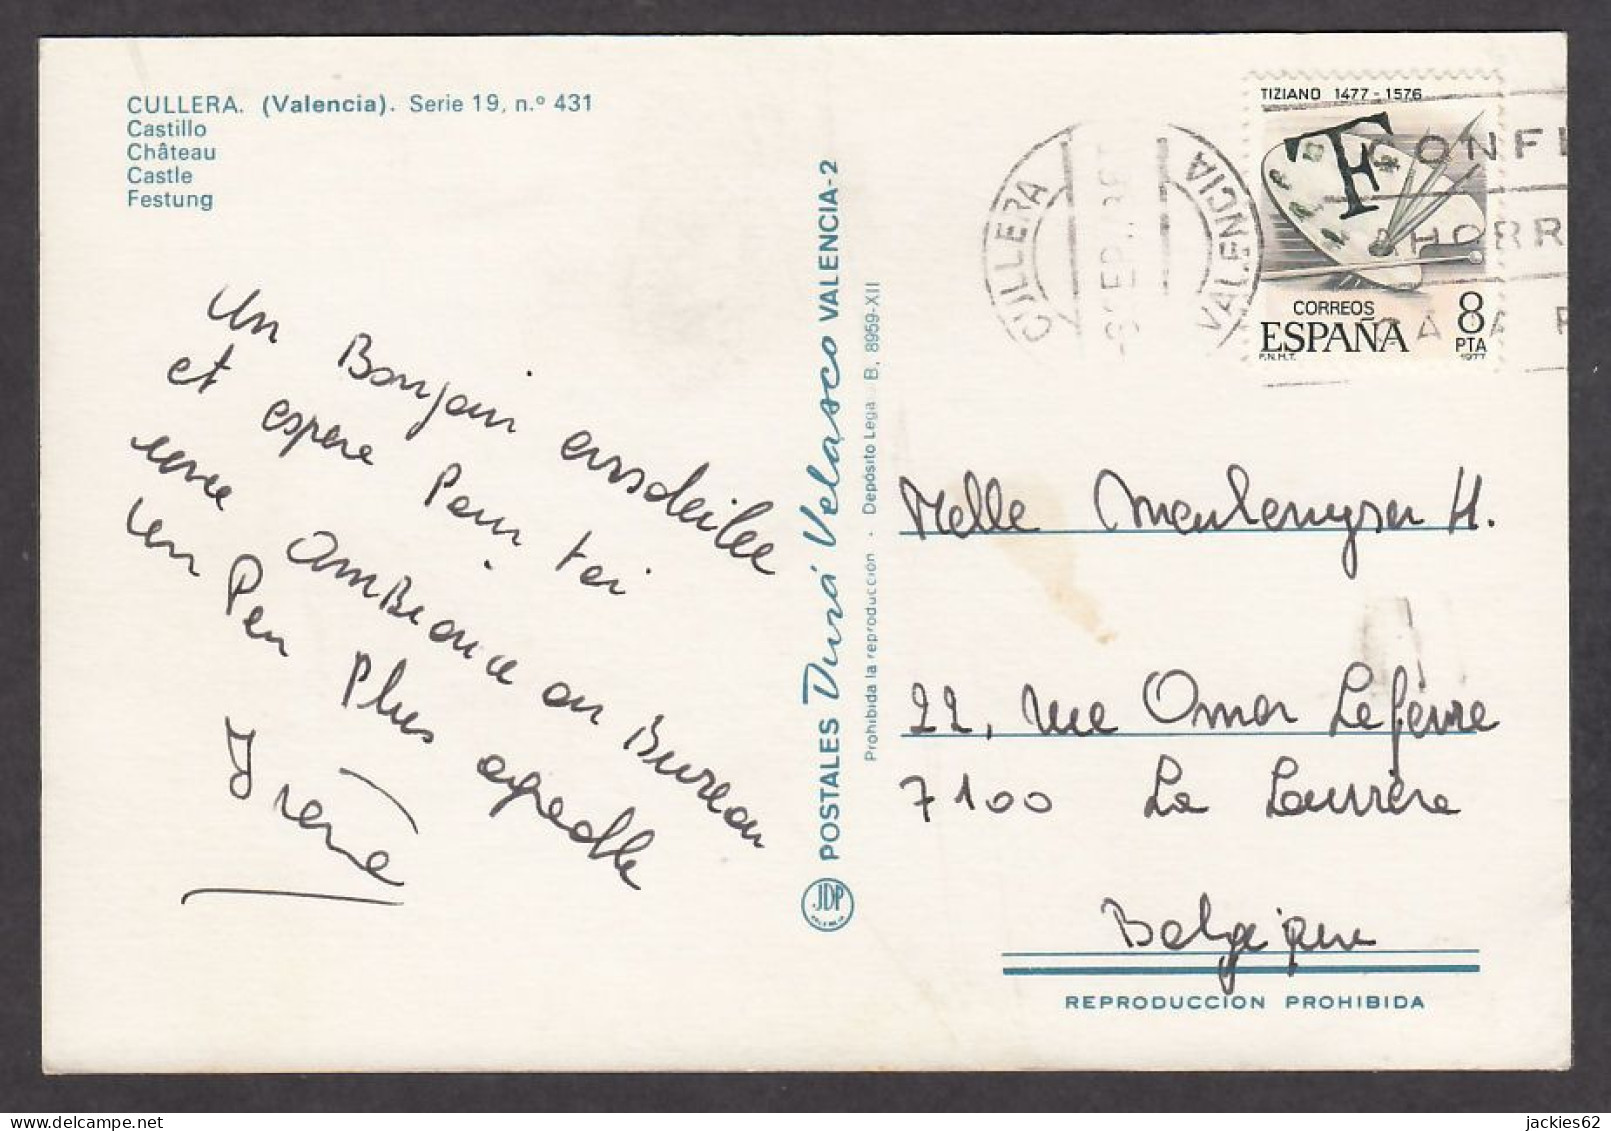 CULLERA. (Valencia). Serie 19, n.º 431
Castillo
Château
Castle
Festung
Un Bonjour ensoleillée
et espère Pour toi
une ambiance au Bureau
un Peu Plus agréable
Irène
POSTALES Durá Velasco VALENCIA-2
Prohibida la reproducción · Depósito Lega B. 8959-XII
JDP
CULLERA
VALENCIA
TIZIANO 1477 - 1576
T
CORREOS
ESPAÑA
8
PTA
F.N.M.T.
1977
CONFI
AHORR
CAJA P
Melle Meulenyser H.
22, rue Omer Lefevre
7100 La Louvière
Belgique
REPRODUCCION PROHIBIDA
jackies62